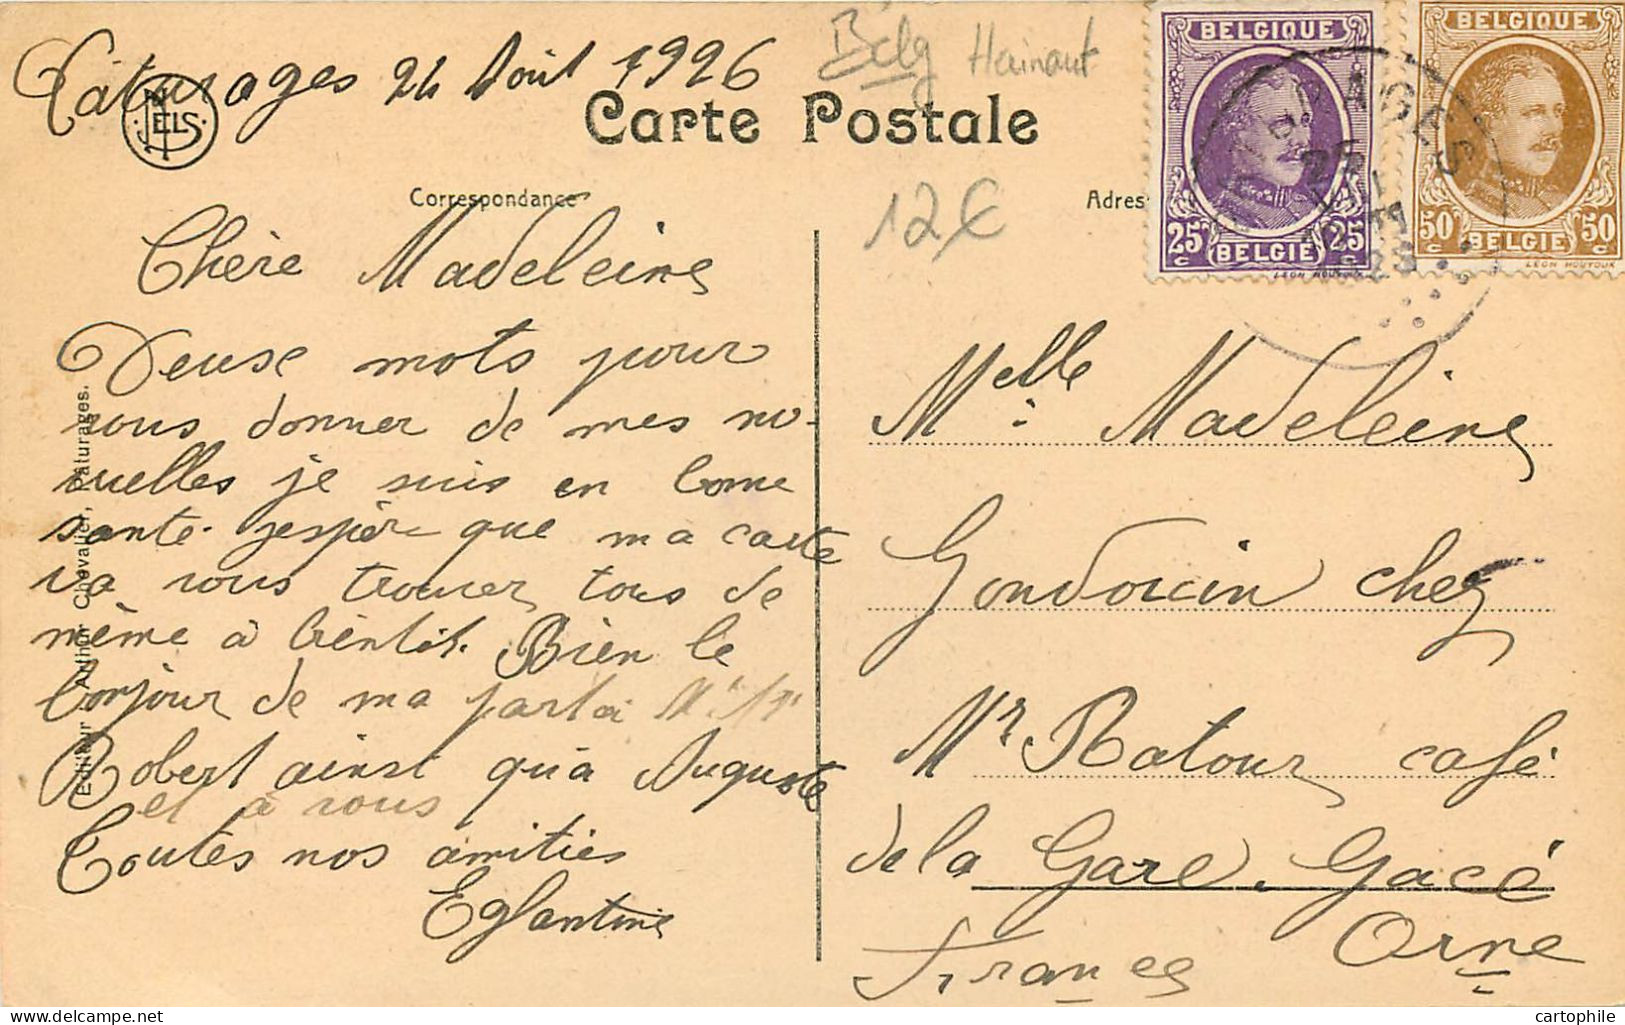 Pâturages 24 Août 1926
Belg Hainaut
NELS
Carte Postale
Correspondance
Adres
12€
BELGIQUE
25c 25c
BELGIE
LEON HOUYOUX
BELGIQUE
50c 50c
BELGIE
LEON HOUYOUX
Chère Madeleine
Deuse mots pour
vous donner de mes no-
uvelles je suis en bonne
santé. jespère que ma carte
va vous trouver tous de
même à bientôt. Bien le
bonjour de ma part à
Robert ainsi qu'à Auguste
et à vous
Toutes nos amitiés
Eglantine
Editeur Arthur Chevalier, Pâturages.
Melle Madeleine
Gondouin chez
Mr Ratour café
de la Gare. Gacé
Orne
France
cartophile